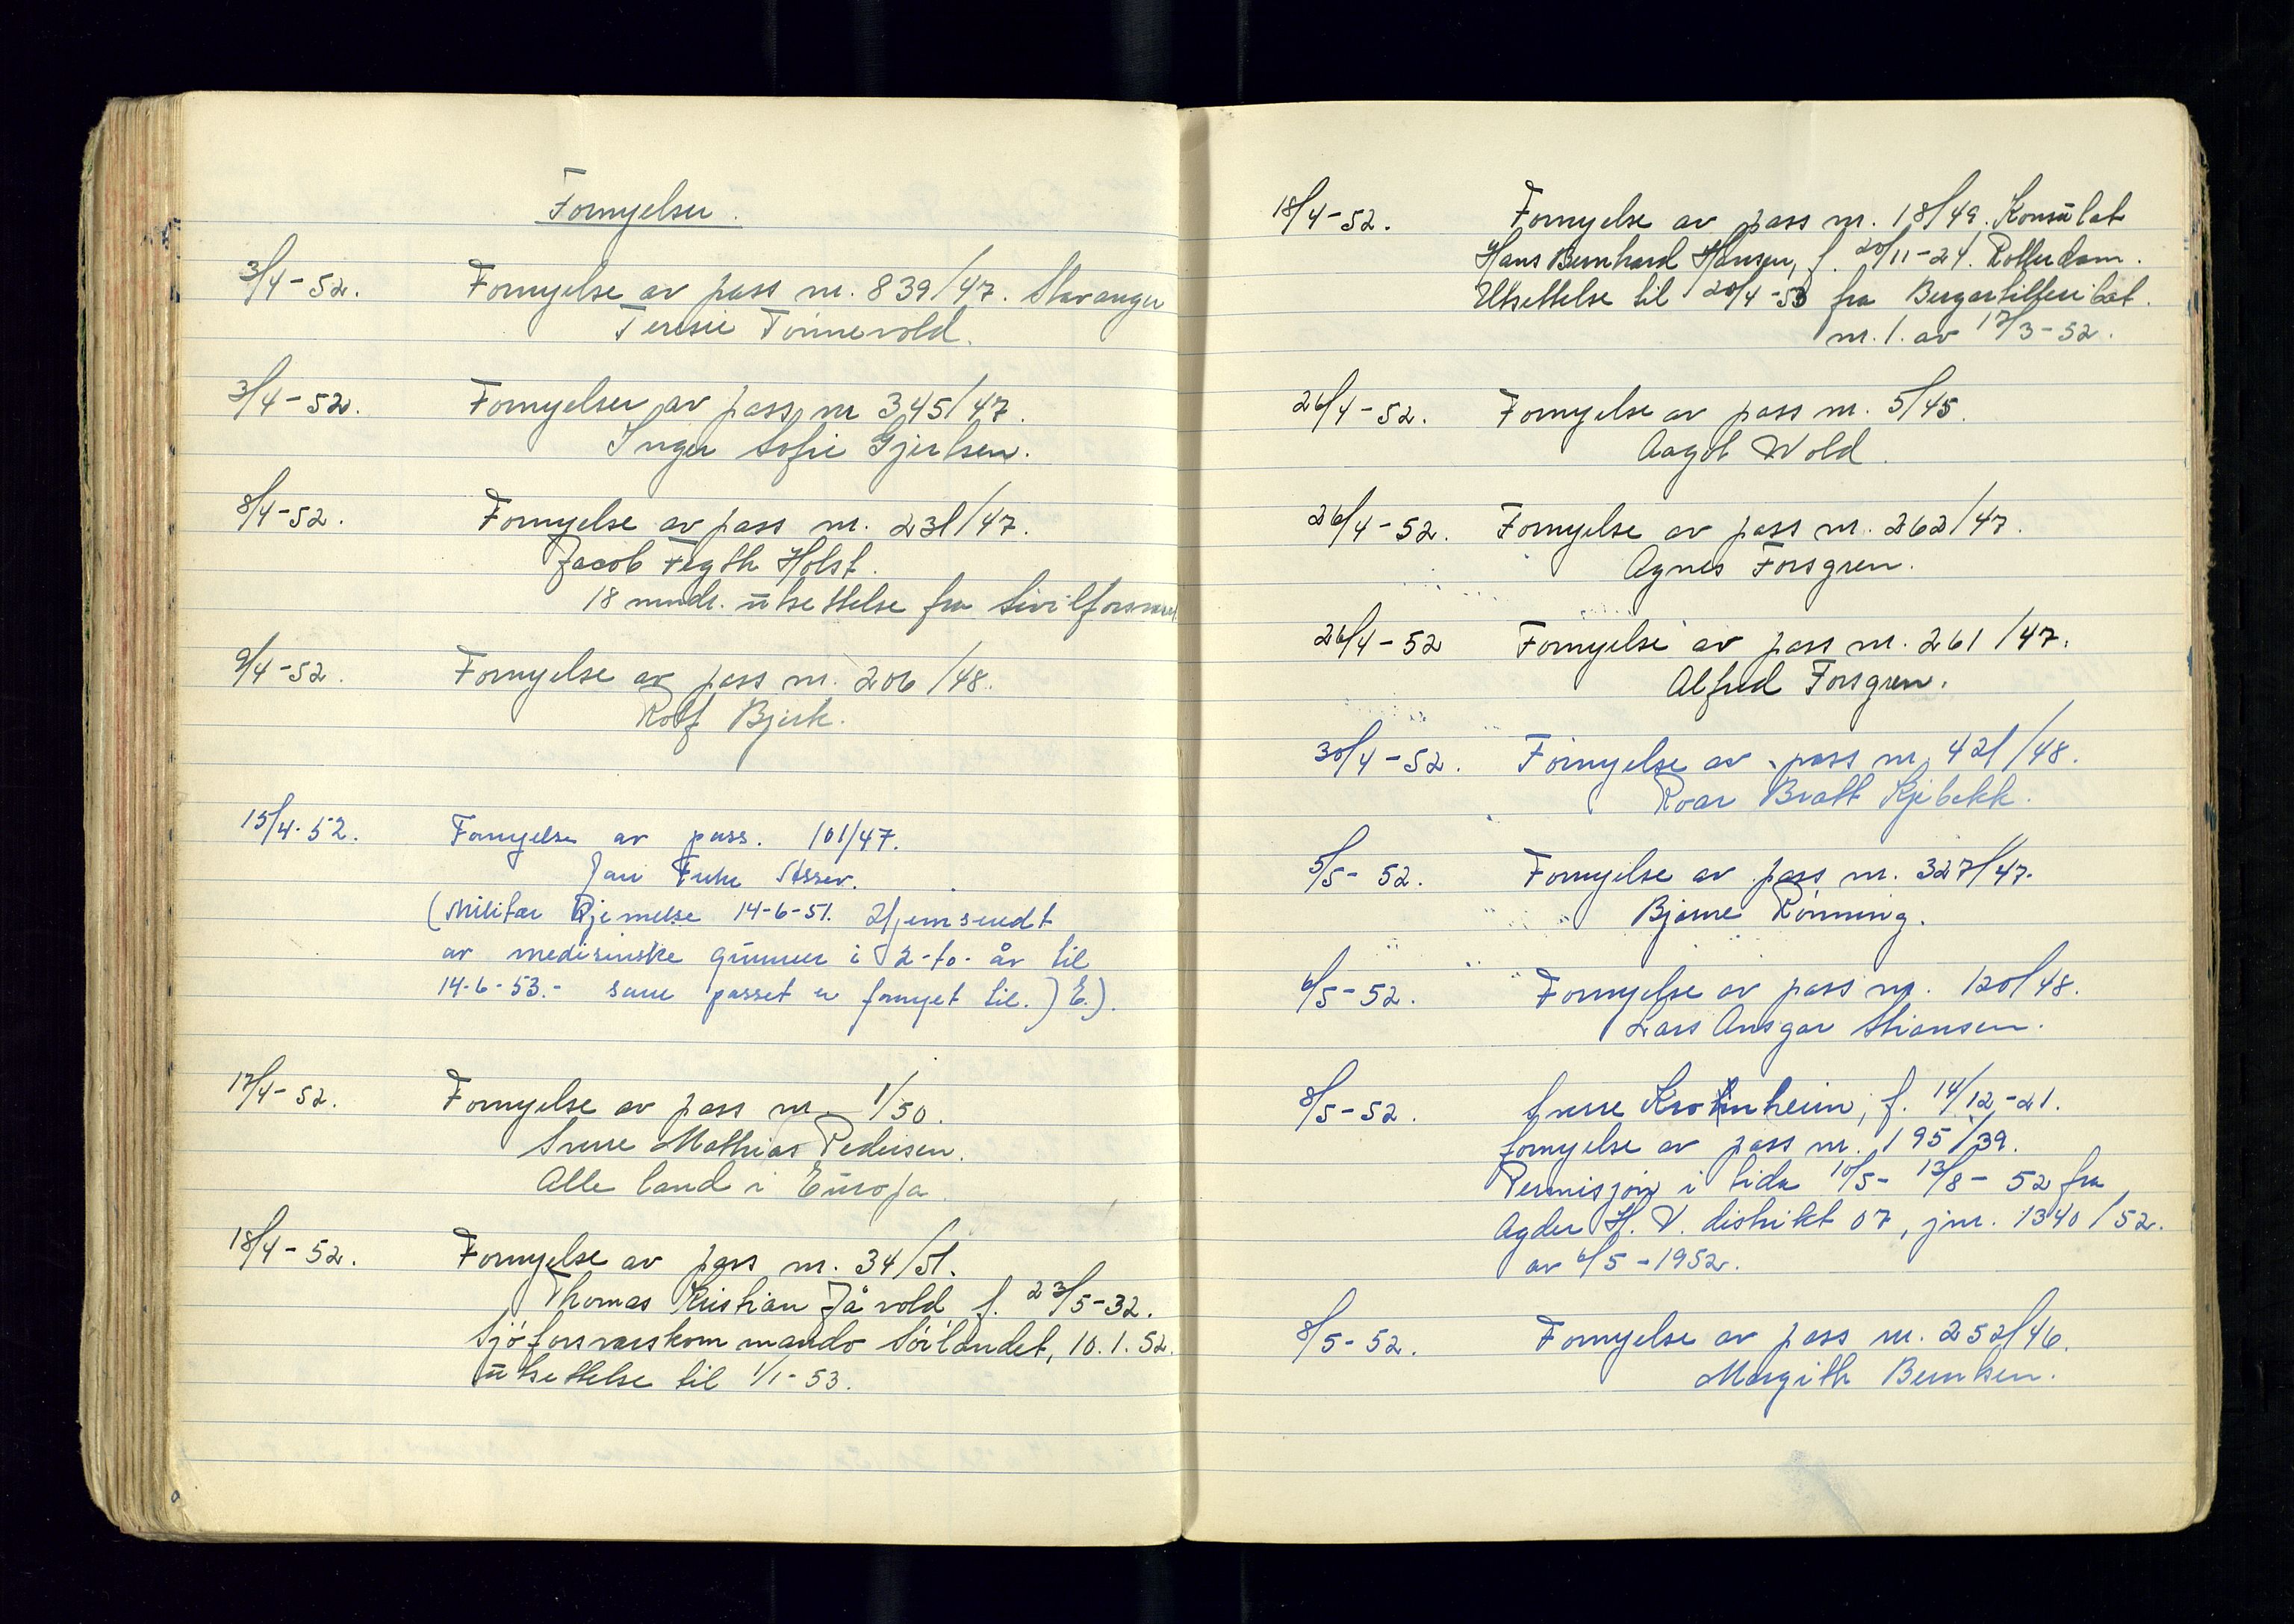 Fornyelser.
3/4-52. Fornyelse av pass nr. 839/47. Stavanger
Teresie Tønnevold.
3/4-52. Fornyelser av pass nr 345/47.
Inger Sofie Gjertsen.
8/4-52. Fornyelse av pass nr. 231/47.
Jacob Fegth Holst.
18 mndr. utsettelse fra Sivilforsvaret
9/4-52. Fornyelse av pass nr. 206/48.
Rolf Bjerk.
15/4-52. Fornyelse av pass. 101/47.
Jan
(Militær tjeneste 14-6-51. Hjemsendt
av medisinske grunner i 2-to- år til
14-6-53.- som passet er fornyet til.) E.).
17/4-52. Fornyelse av pass nr 1/50.
Sverre Mathias Pedersen.
Alle land i Europa.
18/4-52. Fornyelse av pass nr. 34/51.
Thomas Kristian Jåvold f. 23/5-32.
Sjöforsvarskommando Sörlandet, 10.1.52.
utsettelse til 1/1-53.
18/4-52. Fornyelse av pass nr. 18/49. Konsulat
Hans Bernhard Hansen, f. 20/11-24. Rotterdam.
Utsettelse til 20/4-53 fra Bergartilleribat.
nr. 1. av 17/3-52.
26/4-52. Fornyelse av pass nr. 5/45.
Aagot Wold.
26/4-52. Fornyelse av pass nr. 262/47.
Agnes Forsgren.
26/4-52 Fornyelse av pass nr. 261/47.
Alfred Forsgren.
30/4-52. Fornyelse av pass nr. 421/48.
Roar Bratt Kjebekk.
5/5-52. Fornyelse av pass nr. 327/47.
Bjarne Rönning.
6/5-52. Fornyelse av pass nr. 120/48.
Lars Ansgar Stiansen.
8/5-52. Sverre f. 14/12-21.
fornyelse av pass nr. 195/39.
Permisjon i tida 10/5- 13/8-52 fra
Agder H. V. distrikt 07, jnr. 1340/52.
av 6/5-1952.
8/5-52. Fornyelse av pass nr. 252/46.
Margith Berntsen.